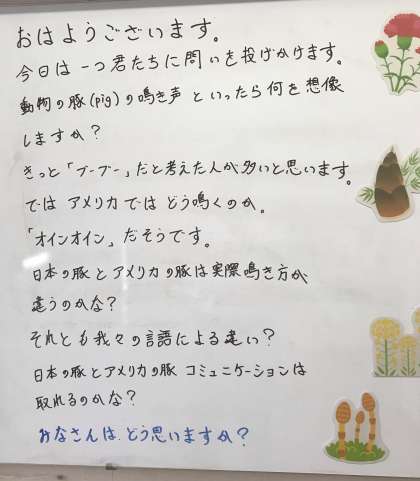 おはようございます。
今日は一つ君たちに問いを投げかけます。
動物の豚(pig)の鳴き声といったら何を想像
しますか？
きっと「ブーブー」だと考えた人が多いと思います。
では アメリカではどう鳴くのか。
「オインオイン」だそうです。
日本の豚とアメリカの豚は実際鳴き方が
違うのかな？
それとも我々の言語による違い？
日本の豚とアメリカの豚 コミュニケーションは
取れるのかな？
みなさんは、どう思いますか？